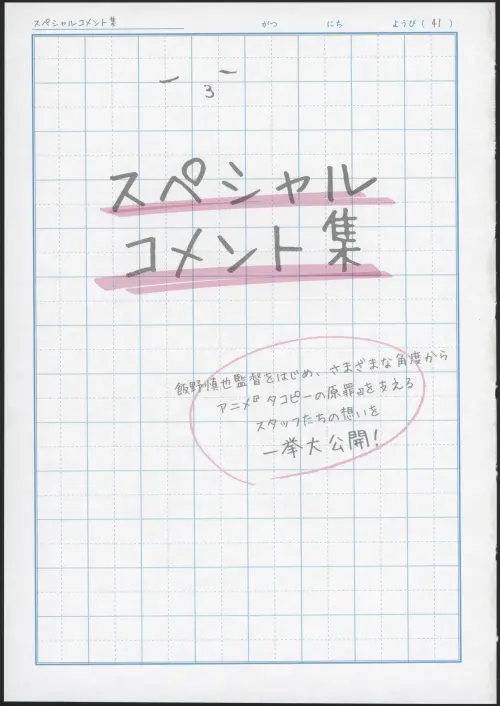 スペシャルコメント集 がつ にち ようび(41)
3
スペシャル
コメント集
飯野慎也監督をはじめ、さまざまな角度から
アニメ『タコピーの原罪』を支える
スタッフたちの想いを
一挙大公開!